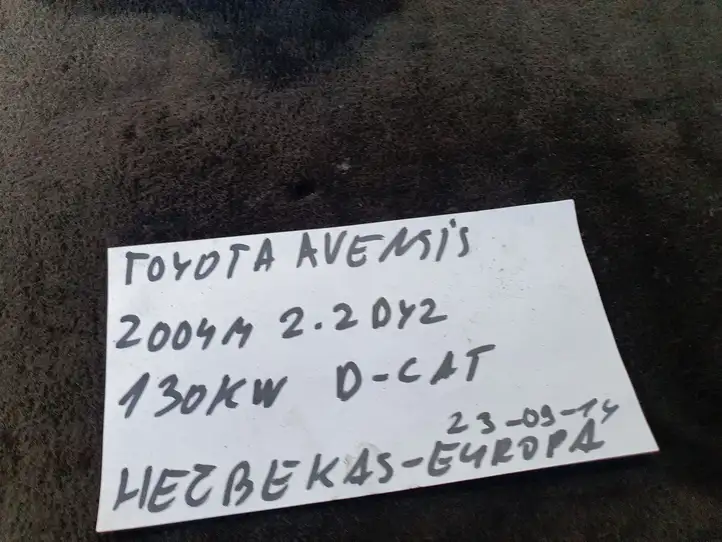 TOYOTA AVENSIS
2004M 2.2 DYZ
130KW D-CAT
23-09-14
HEČBEKAS-EUROPA